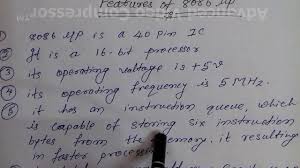 Features of 8086 μp
① 8086 μp is a 40 pin IC
② It is a 16-bit processor
③ its operating voltage is +5v
④ its operating frequency is 5 MHz.
⑤ it has an instruction queue, which
is capable of storing six instruction
bytes from the memory. it resulting
in faster processing
Advanced PDF Compressor